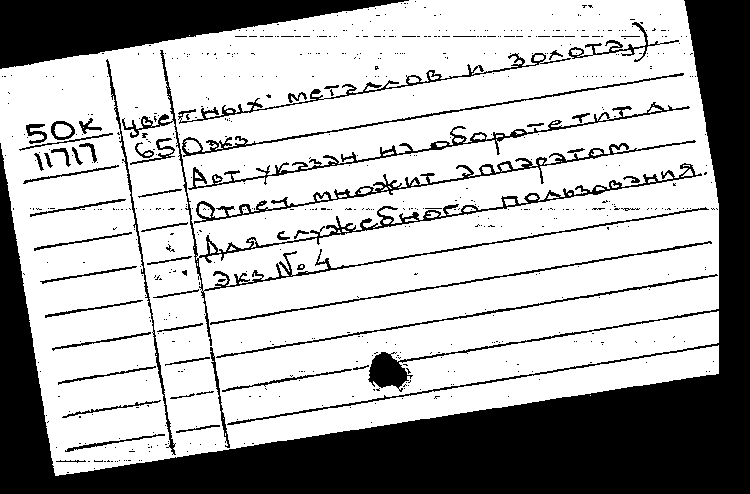 цветных металлов и золота,)
50К
11717
650 экз.
Авт указан на обороте тит л.
Отпеч. множит аппаратом
Для служебного пользования.
Экз. № 4.